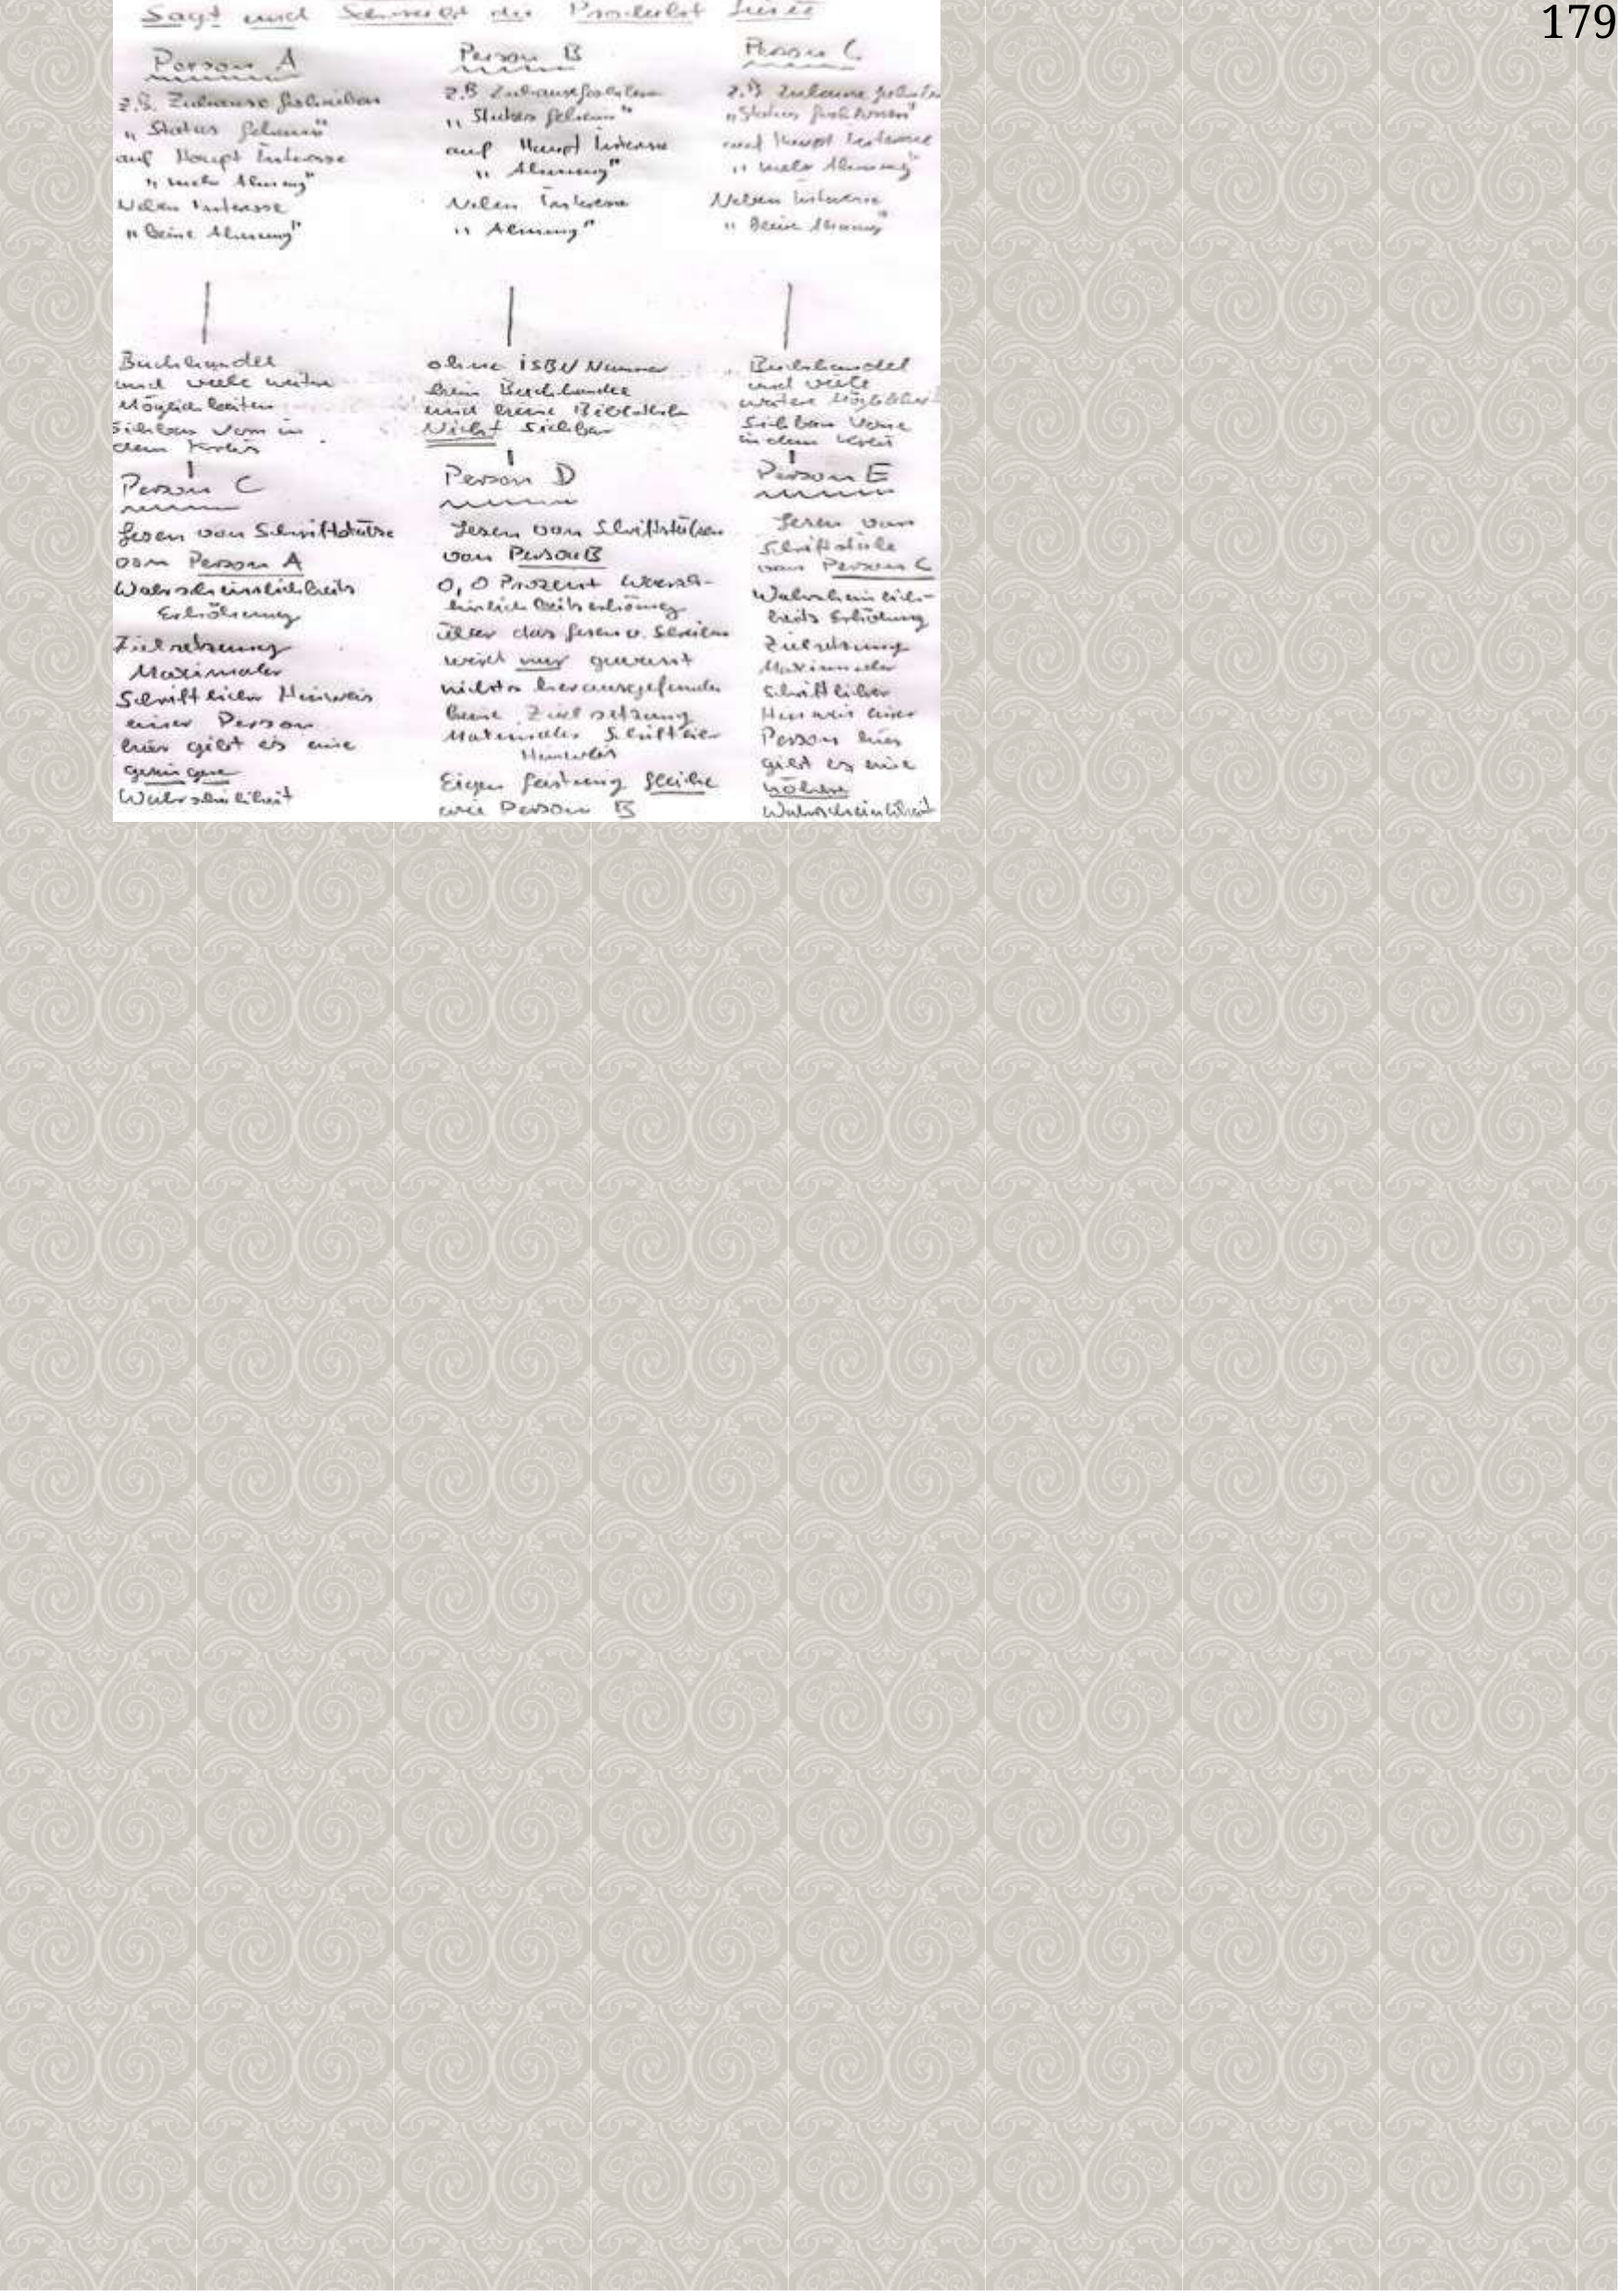 179
Sagt und Schreibt die Produkt Linie
Person A
z.B. Zuhause
"Status
auf Haupt Interesse
"mehr Ahnung"
Neben Interesse
"keine Ahnung"
Buchhandel
und viele weitere
Möglichkeiten
Sichbar vorn in
dem Kreis
Person C
Lesen von Schriftstücke
von Person A
Wahrscheinlichkeits
Erhöhung
Zielsetzung
Maximaler
Schriftlicher Hinweis
einer Person
hier gibt es eine
geringere
Wahrscheinlichkeit
Person B
z.B Zuhause
"Status
auf Haupt Interesse
"Ahnung"
Neben Interesse
"Ahnung"
ohne ISBN Nummer
kein Buchhandel
und keine Bibliothek
Nicht Sichbar
Person D
Lesen von Schriftstücken
von Person B
0,0 Prozent
über das Lesen u.
wird nur
nichts herausgefunden
keine Zielsetzung
Maximaler
Hinweis
Eigen Leistung gleiche
wie Person B
Person C
z.B Zuhause
"Status
und Haupt Interesse
"mehr Ahnung"
Neben Interesse
"keine Ahnung"
Buchhandel
und viele
weitere
Sichbar vorne
in dem Kreis
Person E
Lesen von
Schriftstücke
von Person C
Wahrscheinlich-
keits Erhöhung
Zielsetzung
Maximaler
Schriftlicher
Hinweis einer
Person hier
gibt es eine
höhere
Wahrscheinlichkeit